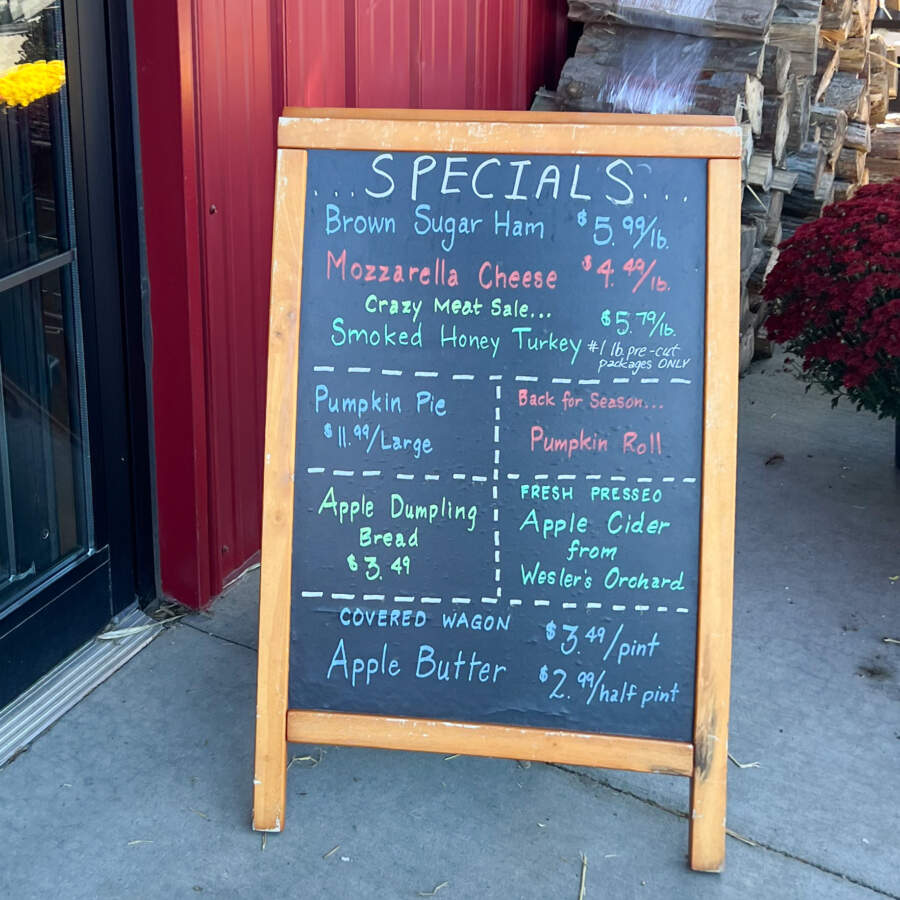 ...SPECIALS...
Brown Sugar Ham $5.99/lb.
Mozzarella Cheese $4.49/lb.
Crazy Meat Sale...
Smoked Honey Turkey $5.79/lb.
#1 lb. pre-cut
packages ONLY
Pumpkin Pie
$11.99/Large
Back for Season...
Pumpkin Roll
Apple Dumpling
Bread
$3.49
FRESH PRESSED
Apple Cider
from
Wesler's Orchard
COVERED WAGON
Apple Butter
$3.49/pint
$2.99/half pint